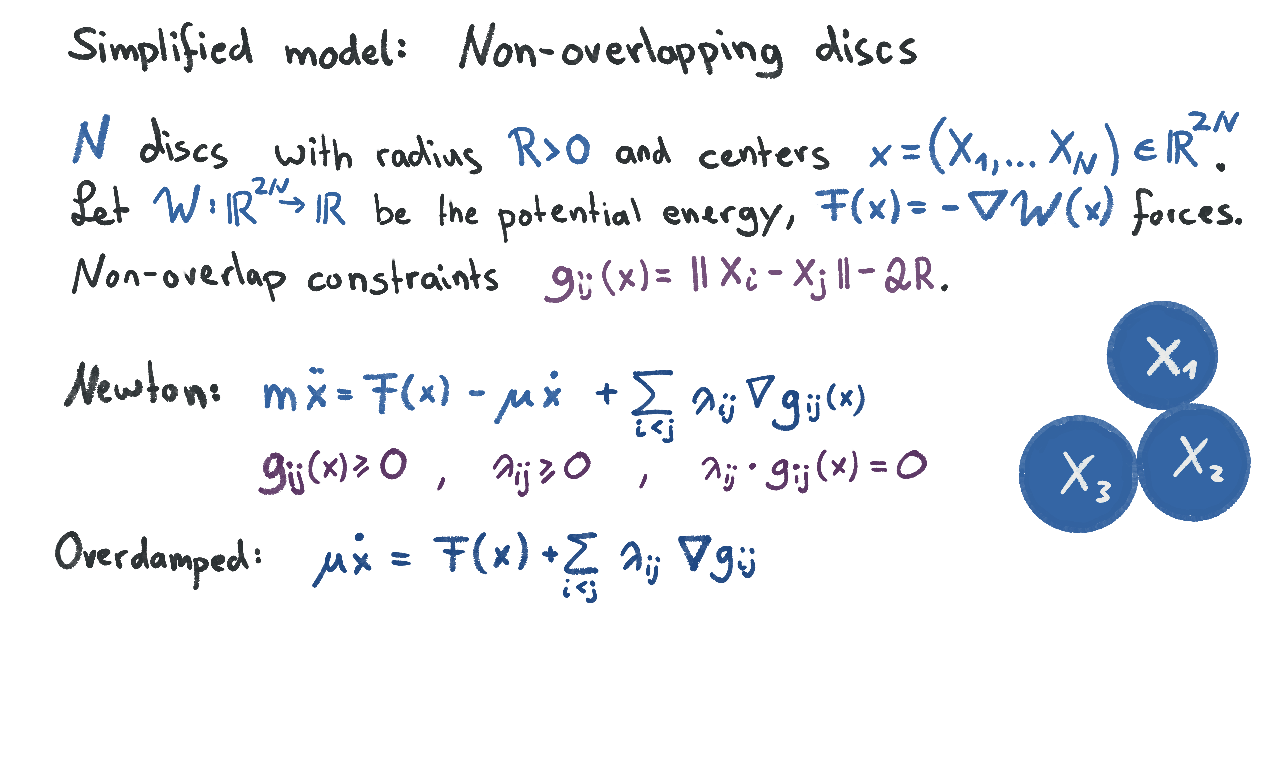 Simplified model: Non-overlapping discs
N discs with radius R>0 and centers x = (X₁,... X_N) ∈ ℝ²ᴺ.
Let W : ℝ²ᴺ → ℝ be the potential energy, F(x) = - ∇W(x) forces.
Non-overlap constraints g_ij(x) = || X_i - X_j || - 2R.
Newton: mẍ = F(x) - μẋ + Σ_{i<j} λ_ij ∇g_ij(x)
g_ij(x) ⩾ 0 , λ_ij ⩾ 0 , λ_ij · g_ij(x) = 0
Overdamped: μẋ = F(x) + Σ_{i<j} λ_ij ∇g_ij
X₁
X₂
X₃